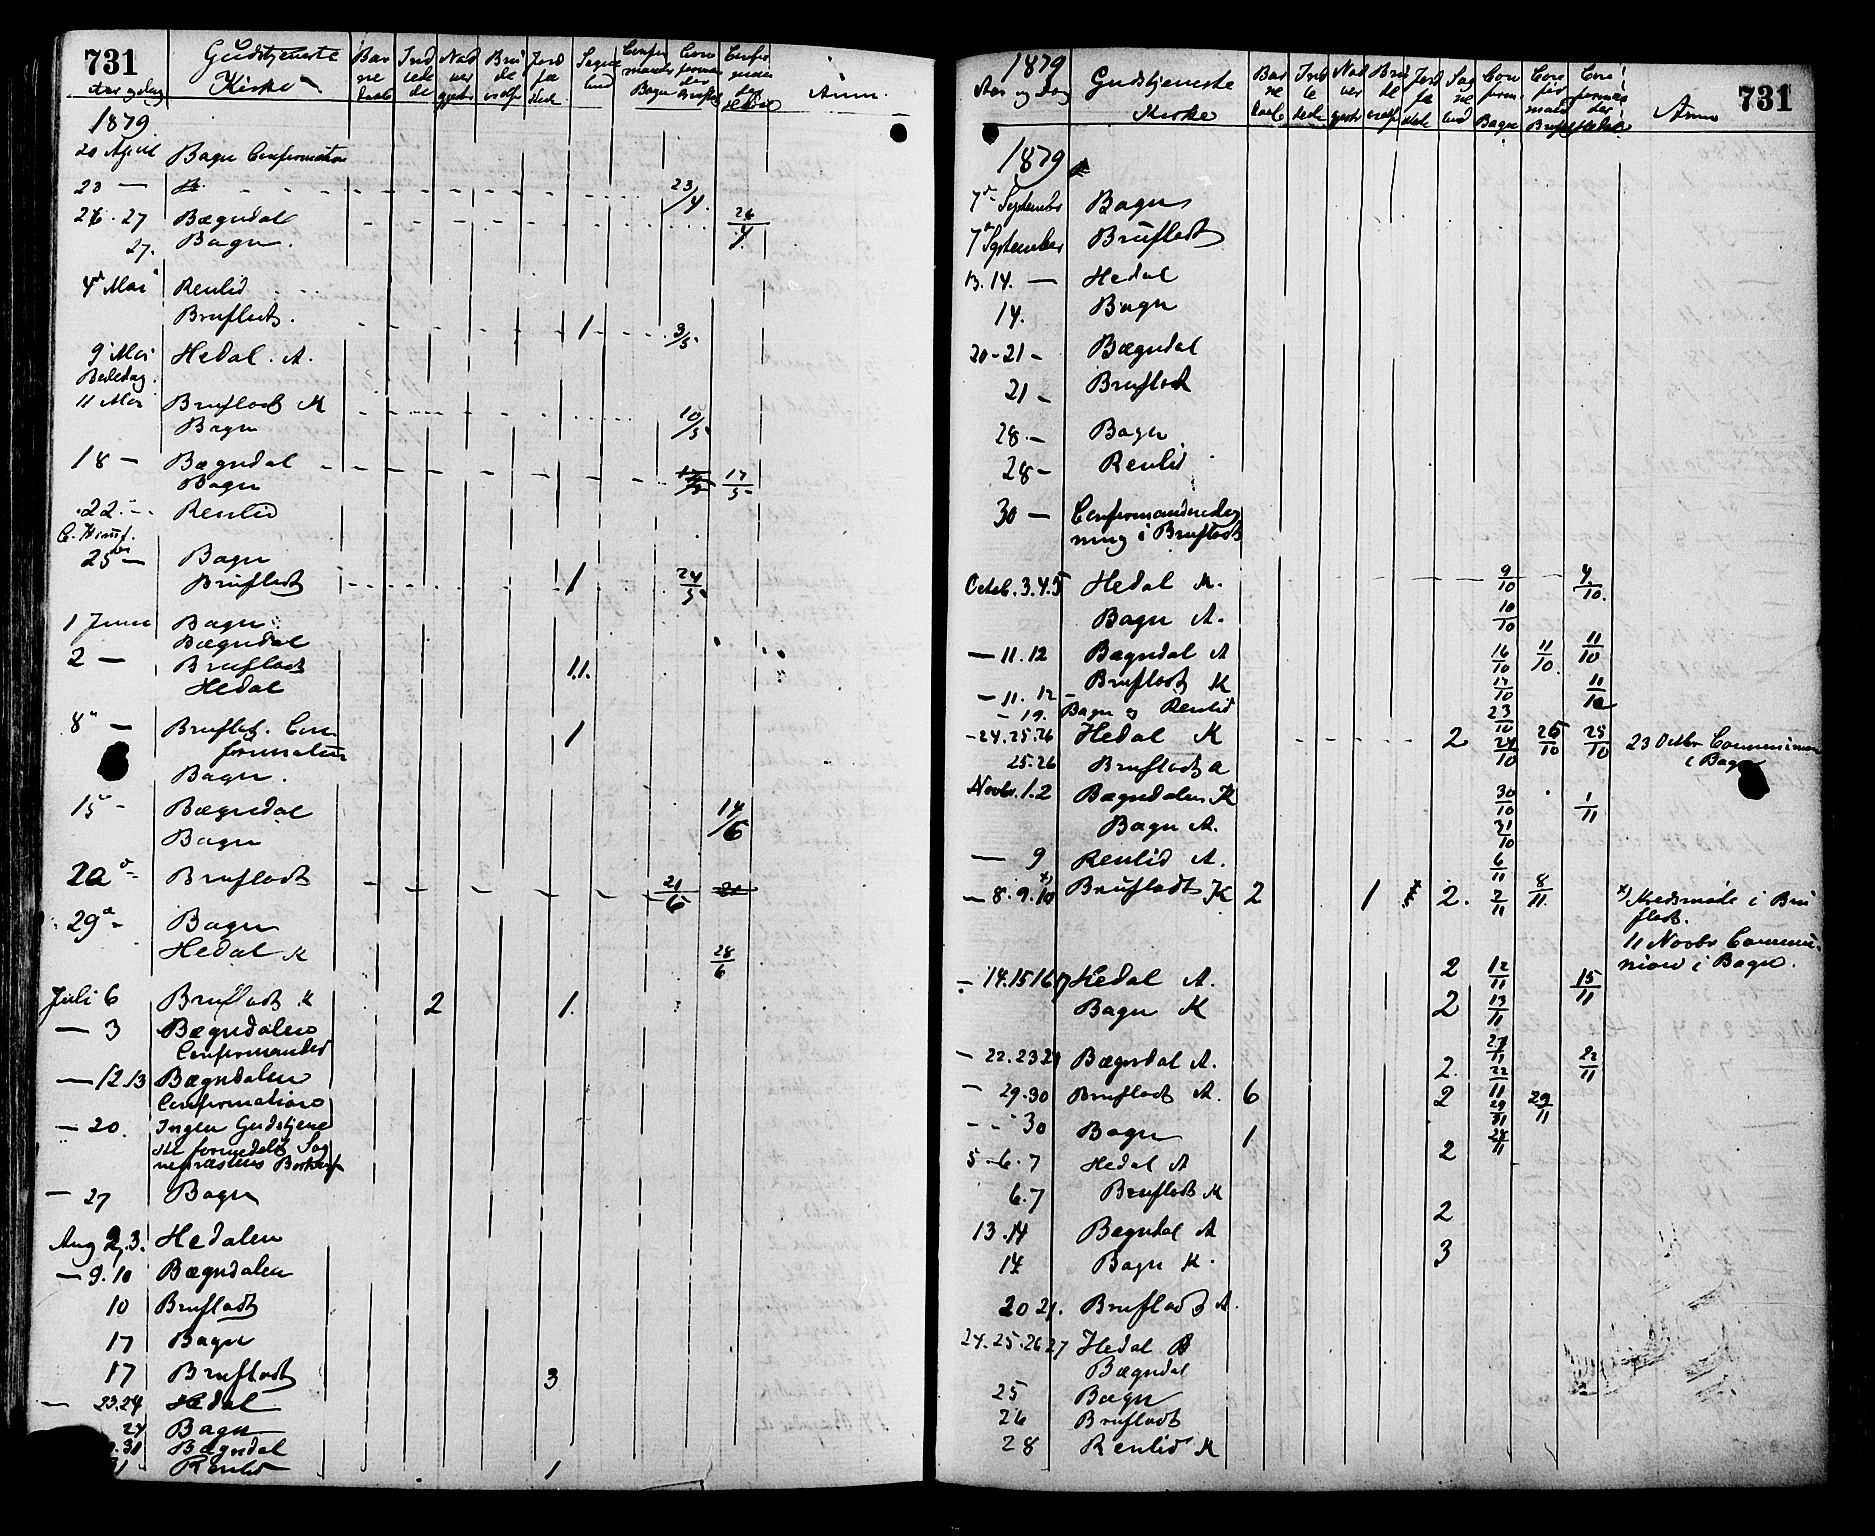 731
Aar og dag
Gudstjeneste
Kirke
Bar
ne
daab
Ind
lede
de
Nad
ver
gjester
Bru
de
Jord
fæ
stede
Confir
mander
Bagn
Con
firman
der
Bruflat
Confir
man
der
Hedal
Anm.
1879
20 April Bagn Confirmation
23 — 23/4
26. 27 Bægndal 26/4
27. Bagn.
4de Mai Renlid
Bruflat. 1 3/5
9 Mai Hedal. A.
Bededag.
11 Mai Brufladt K 10/5
Bagn
18 — Bægndal 17/5
Bagn
22. — Renlid
C. Himf.
25de — Bagn
Bruflat 1 24/5
1 Juni Bagn
Bægndal
2 — Brufladt 1.1.
Hedal
8de — Bruflat. Con 1
firmation
Bagn.
15 — Bægndal 14/6
Bagn
22 — Brufladt 21/6
29de — Bagn
Hedal K 28/6
Juli 6 Brufladt K 2 1.
— 3 Bægndalen
Confirmander
— 12.13 Bægndalen
Confirmation
— 20. Ingen Gudstjene
ste formedelst Sog
nepræstens Bortrejse
— 27 Bagn
Aug 2.3. Hedalen
— 9.10 Bægndalen
10 Brufladt
17 Bagn
17 Brufladt 3
— 23.24 Hedal
24 Bagn
30 Bægndal
Renlid 1
1879
Aar og Dag
Gudstjeneste
Kirke
Bar
ne
daab
Ind
le
dede
Nad
ver
gjester
Bru
de
Jord
fæ
stede
Con
firm.
Bagn
Con
fir
mand
Bruflat
Con
firman
der
Hedal
Anm
731
1879
7de September Bagn
7de September Bruflat
13. 14. — Hedal
14. Bagn
20-21 — Bægndal
21 — Brufladt
28. — Bagn
28 — Renlid
30 — Confirmandredeg
ning i Bruflat
Octob. 3.4.5 Hedal K. 9/10 4/10.
Bagn A. 10/10
— 11.12 Bægndal A 16/10 11/10 11/10
— 11. 12 — Brufladt K 17/10 11/10
— 19. Bagn og Renlid 23/10
— 24.25.26 Hedal K 2 24/10 25/10 25/10 23 Octbr Communion
i Bagn
25.26 Brufladt A
Novbr. 1.2 Bægndalen K 30/10 1/11
Bagn A. 31/10
— 9 Renlid A. 6/11
— 8.9.10 x) Brufladt K 2 1 2. 7/11 8/11 x) Kredsmøde i Bru
flat.
11 Novbr Commu
nion i Bagn.
— 14.15 16 17 Hedal A. 2 12/11 15/11
Bagn K 2 13/11
— 22.23 24 Bægndal A. 2. 21/11 22/11 22/11
— 29.30 Brufladt A. 6 2 29/11
— 30 Bagn 1
5-6.7 Hedal A 2
6.7 Bruflat K
13.14 Bægndal A 2
14 Bagn K. 3
20 21. Bruflat A.
24.25.26 27 Hedal
Bægndal
25 Bagn
26 Bruflat
28 Renlid K